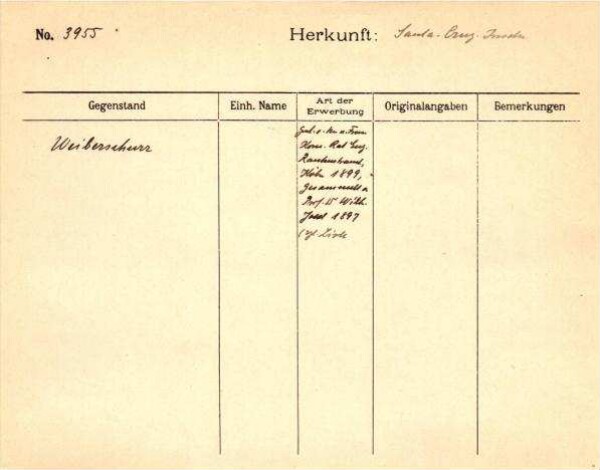 No. 3955
Herkunft: Santa-Cruz-Inseln
Gegenstand Einh. Name Art der Erwerbung Originalangaben Bemerkungen
Weiberschurz
Frau
Rat Eug.
Rautenstrauch,
Köln 1899,
Gesammelt v.
Prof. Dr Wilh.
Joest 1897